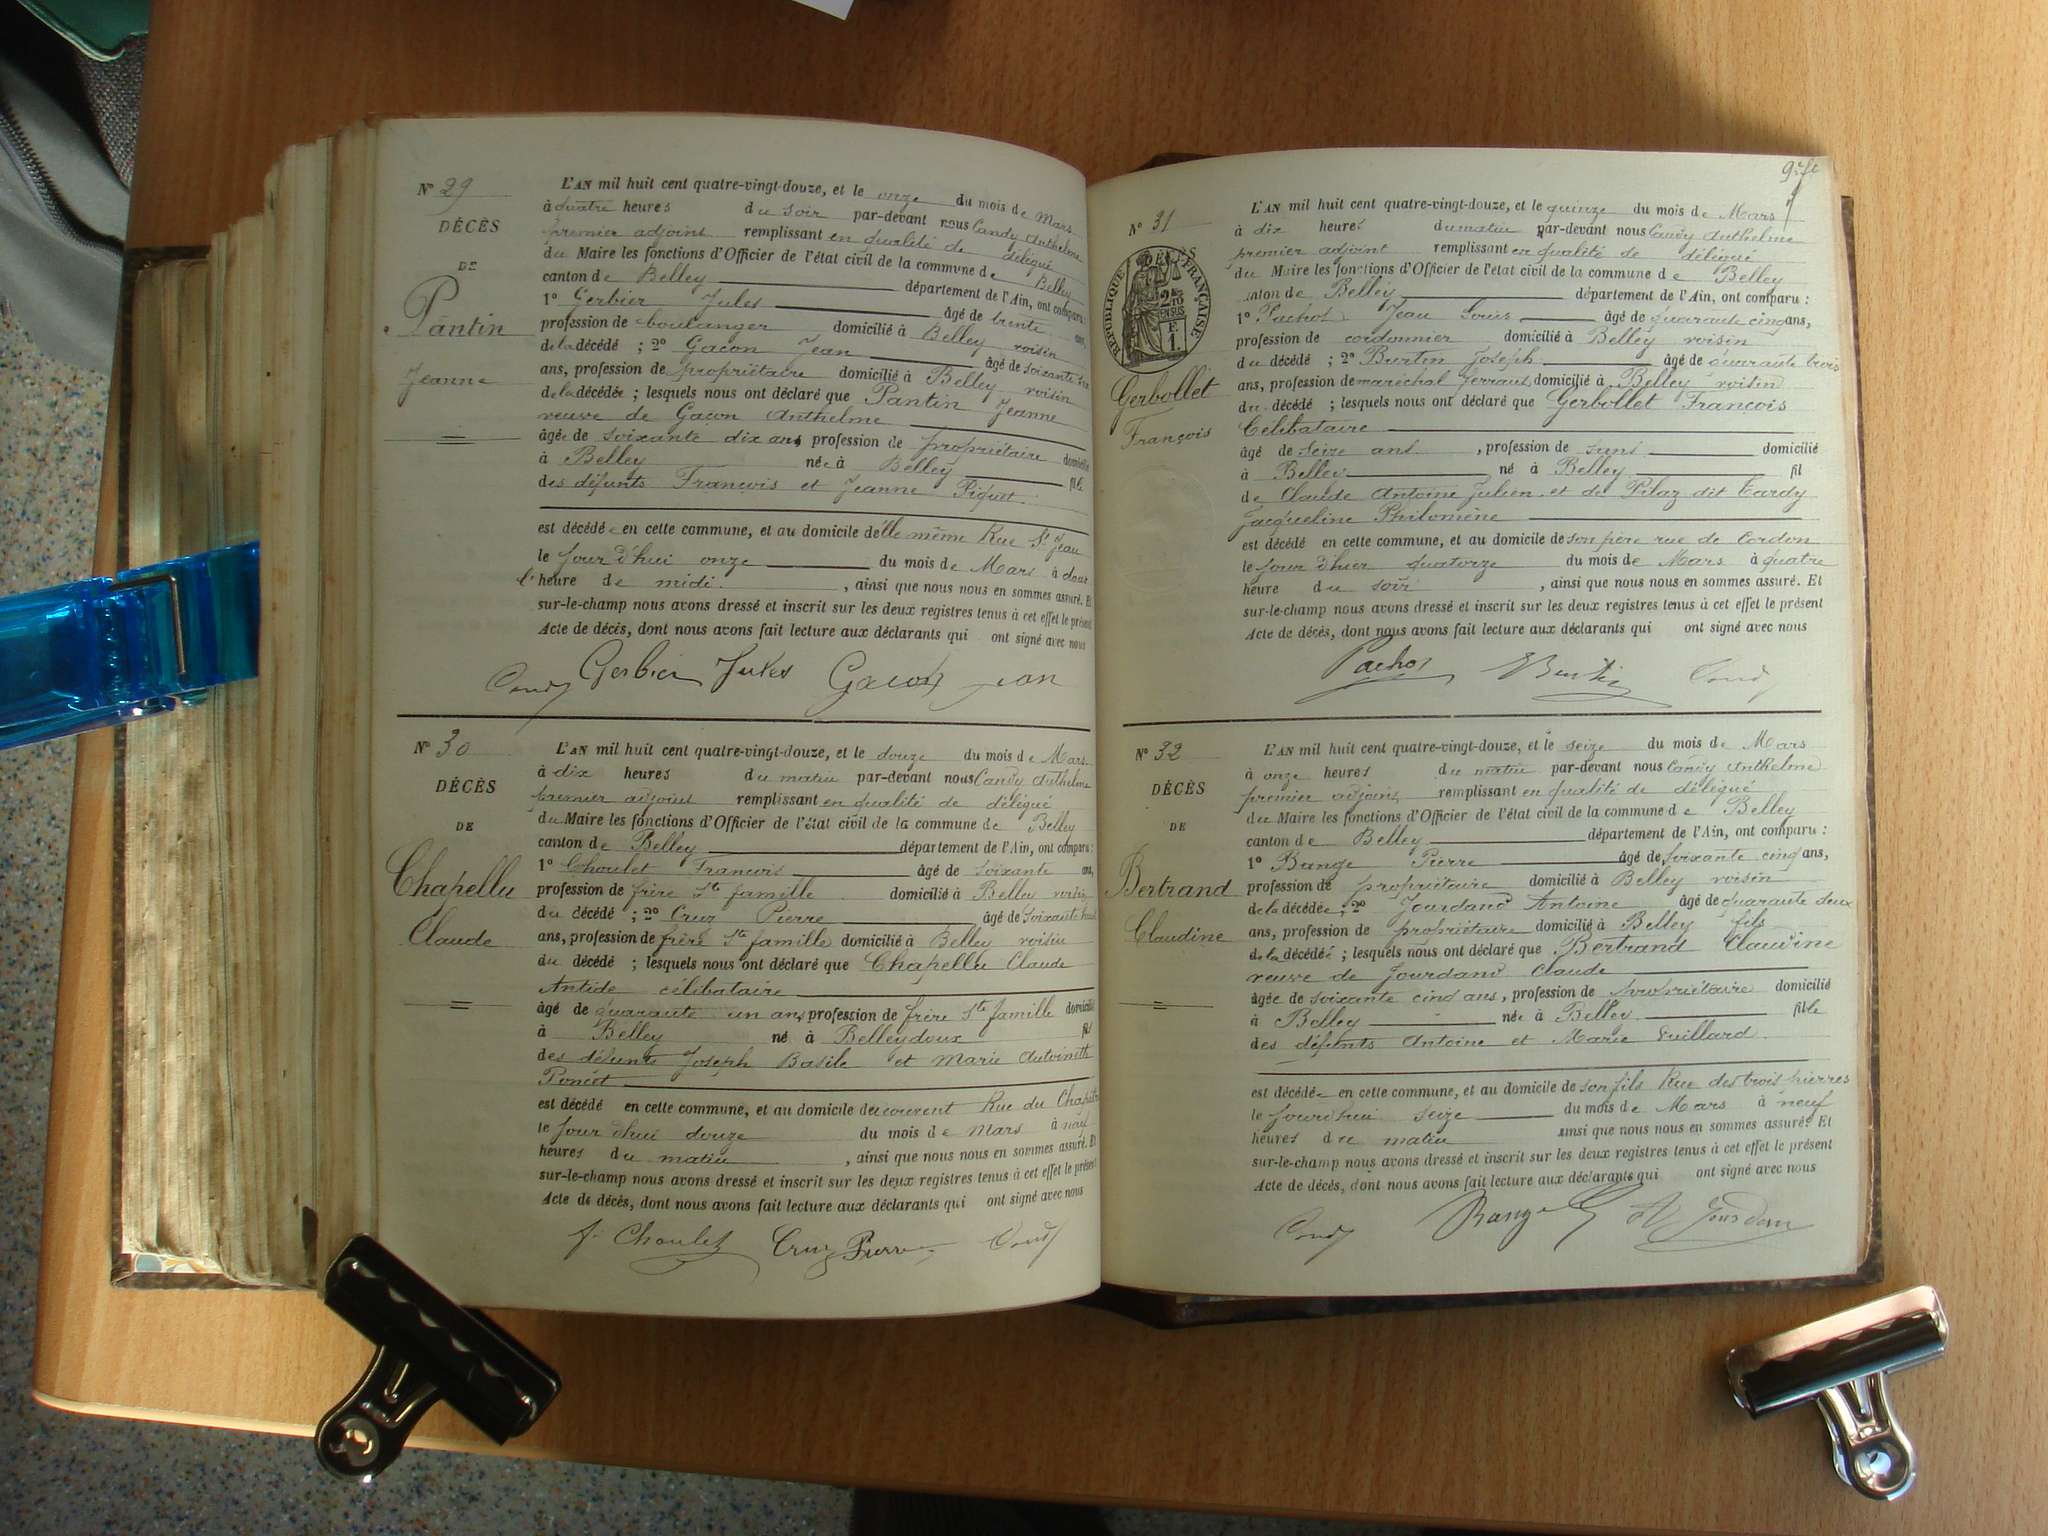 N° 29
DÉCÈS
DE
Pantin
Jeanne
L'AN mil huit cent quatre-vingt-douze, et le onze du mois de Mars
à quatre heures du soir par-devant nous Candy Anthelme
premier adjoint remplissant en qualité de délégué
du Maire les fonctions d'Officier de l'état civil de la commune de Belley
canton de Belley département de l'Ain, ont comparu :
1° Gerbier Jules âgé de trente ans,
profession de boulanger domicilié à Belley voisin
de la décédé ; 2° Gacon Jean âgé de soixante
ans, profession de propriétaire domicilié à Belley voisin
de la décédée ; lesquels nous ont déclaré que Pantin Jeanne
veuve de Gacon Anthelme
âgée de soixante dix ans profession de propriétaire domicilié
à Belley née à Belley fille
des défunts François et Jeanne Piquet
est décédée en cette commune, et au domicile d'elle même Rue St Jean
le jour d'hui onze du mois de Mars à douz
heure de midi, ainsi que nous nous en sommes assuré. Et
sur-le-champ nous avons dressé et inscrit sur les deux registres tenus à cet effet le présent
Acte de décès, dont nous avons fait lecture aux déclarants qui ont signé avec nous
Candy Gerbier Jules Gacon Jean
N° 30
DÉCÈS
DE
Chapellu
Claude
L'AN mil huit cent quatre-vingt-douze, et le douze du mois de Mars
à dix heures du matin par-devant nous Candy Anthelme
premier adjoint remplissant en qualité de délégué
du Maire les fonctions d'Officier de l'état civil de la commune de Belley
canton de Belley département de l'Ain, ont comparu :
1° Choulet François âgé de soixante ans,
profession de frère Ste famille domicilié à Belley voisin
du décédé ; 2° Cruz Pierre âgé de soixante
ans, profession de frère Ste famille domicilié à Belley voisin
du décédé ; lesquels nous ont déclaré que Chapellu Claude
Antide célibataire
âgé de quarante un ans profession de frère Ste famille domicilié
à Belley né à Belleydoux fil
des défunts Joseph Basile et Marie Antoinette
Poncet
est décédé en cette commune, et au domicile du couvent Rue du Chapitre
le jour d'hui douze du mois de Mars à neuf
heures du matin, ainsi que nous nous en sommes assuré. Et
sur-le-champ nous avons dressé et inscrit sur les deux registres tenus à cet effet le présent
Acte de décès, dont nous avons fait lecture aux déclarants qui ont signé avec nous
f. Choulet Cruz Pierre Candy
N° 31
DÉCÈS
RÉPUBLIQUE FRANÇAISE
Gerbollet
François
L'AN mil huit cent quatre-vingt-douze, et le quinze du mois de Mars
à dix heures du matin par-devant nous Candy Anthelme
premier adjoint remplissant en qualité de délégué
du Maire les fonctions d'Officier de l'état civil de la commune de Belley
canton de Belley département de l'Ain, ont comparu :
1° Pachot Jean Louis âgé de quarante cinq ans,
profession de cordonnier domicilié à Belley voisin
du décédé ; 2° Burtin Joseph âgé de quarante trois
ans, profession de maréchal ferrant domicilié à Belley voisin
du décédé ; lesquels nous ont déclaré que Gerbollet François
Célibataire
âgé de seize ans, profession de sans domicilié
à Belley né à Belley fil
de Claude Antoine Julien et de Pilaz dit Tardy
Jacqueline Philomène
est décédé en cette commune, et au domicile de son père rue de Cordon
le jour d'hier quatorze du mois de Mars à quatre
heure du soir, ainsi que nous nous en sommes assuré. Et
sur-le-champ nous avons dressé et inscrit sur les deux registres tenus à cet effet le présent
Acte de décès, dont nous avons fait lecture aux déclarants qui ont signé avec nous
Pachot Burtin Candy
N° 32
DÉCÈS
DE
Bertrand
Claudine
L'AN mil huit cent quatre-vingt-douze, et le seize du mois de Mars
à onze heures du matin par-devant nous Candy Anthelme
premier adjoint remplissant en qualité de délégué
du Maire les fonctions d'Officier de l'état civil de la commune de Belley
canton de Belley département de l'Ain, ont comparu :
1° Bange Pierre âgé de soixante cinq ans,
profession de propriétaire domicilié à Belley voisin
de la décédée ; 2° Jourdand Antoine âgé de quarante deux
ans, profession de propriétaire domicilié à Belley fils
de la décédé ; lesquels nous ont déclaré que Bertrand Claudine
veuve de Jourdand Claude
âgée de soixante cinq ans, profession de propriétaire domicilié
à Belley née à Belley fille
des défunts Antoine et Marie Guillard
est décédée en cette commune, et au domicile de son fils Rue des trois pierres
le jourd'hui seize du mois de Mars à neuf
heures du matin ainsi que nous nous en sommes assuré. Et
sur-le-champ nous avons dressé et inscrit sur les deux registres tenus à cet effet le présent
Acte de décès, dont nous avons fait lecture aux déclarants qui ont signé avec nous
Candy Bange A Jourdan